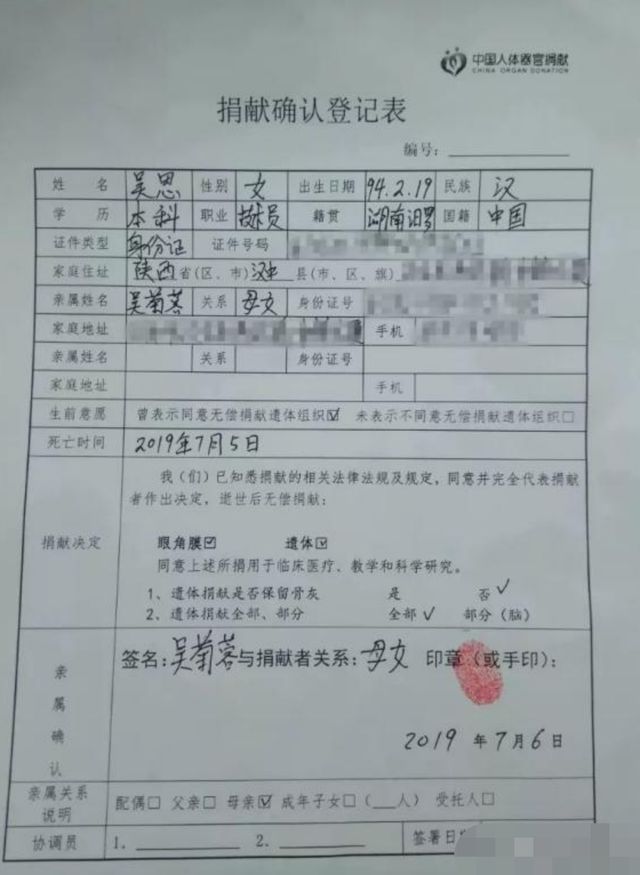 中国人体器官捐献
CHINA ORGAN DONATION
捐献确认登记表
编号：
姓 名 吴思 性别 女 出生日期 94.2.19 民族 汉
学 历 本科 职业 技术员 籍贯 湖南汨罗 国籍 中国
证件类型 身份证 证件号码
家庭住址 陕西省(区、市)汉中 县(市、区、旗)
亲属姓名 吴菊蓉 关系 母女 身份证号
家庭地址 手机
亲属姓名 关系 身份证号
家庭地址 手机
生前意愿 曾表示同意无偿捐献遗体组织☑ 未表示不同意无偿捐献遗体组织□
死亡时间 2019年7月5日
我（们）已知悉捐献的相关法律法规及规定，同意并完全代表捐献
者作出决定，逝世后无偿捐献：
捐献决定
眼角膜☑ 遗体☑
同意上述所捐用于临床医疗、教学和科学研究。
1、遗体捐献是否保留骨灰 是 否✓
2、遗体捐献全部、部分 全部✓ 部分（脑）
亲属确认
签名：吴菊蓉与捐献者关系：母女 印章（或手印）：
2019 年 7 月 6 日
亲属关系说明 配偶□ 父亲□ 母亲☑ 成年子女□（___人） 受托人□
协调员 1. 2. 签署日